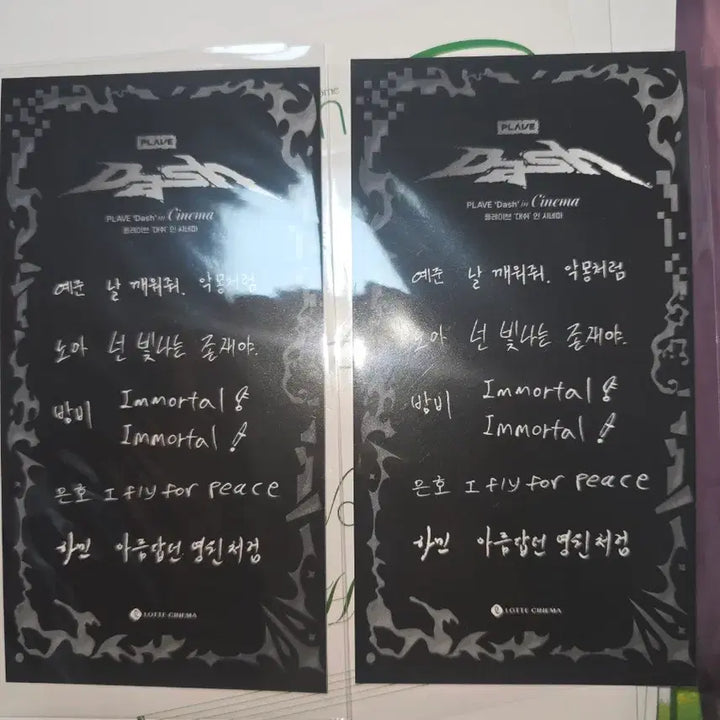 PLAVE
Dash
PLAVE 'Dash' in Cinema
플레이브 '대쉬' 인 시네마
예준 날 깨워줘. 악몽처럼
노아 넌 빛나는 존재야.
밤비 Immortal
Immortal
은호 I fly for peace
하민 아름답던 영원처럼
LOTTE CINEMA
PLAVE
Dash
PLAVE 'Dash' in Cinema
플레이브 '대쉬' 인 시네마
예준 날 깨워줘. 악몽처럼
노아 넌 빛나는 존재야.
밤비 Immortal
Immortal
은호 I fly for peace
하민 아름답던 영원처럼
LOTTE CINEMA